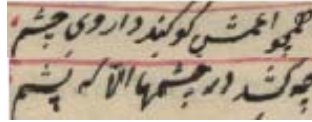 همچو اعمش کو کند داروی چشم
چه کشد در چشمها الا که پشم